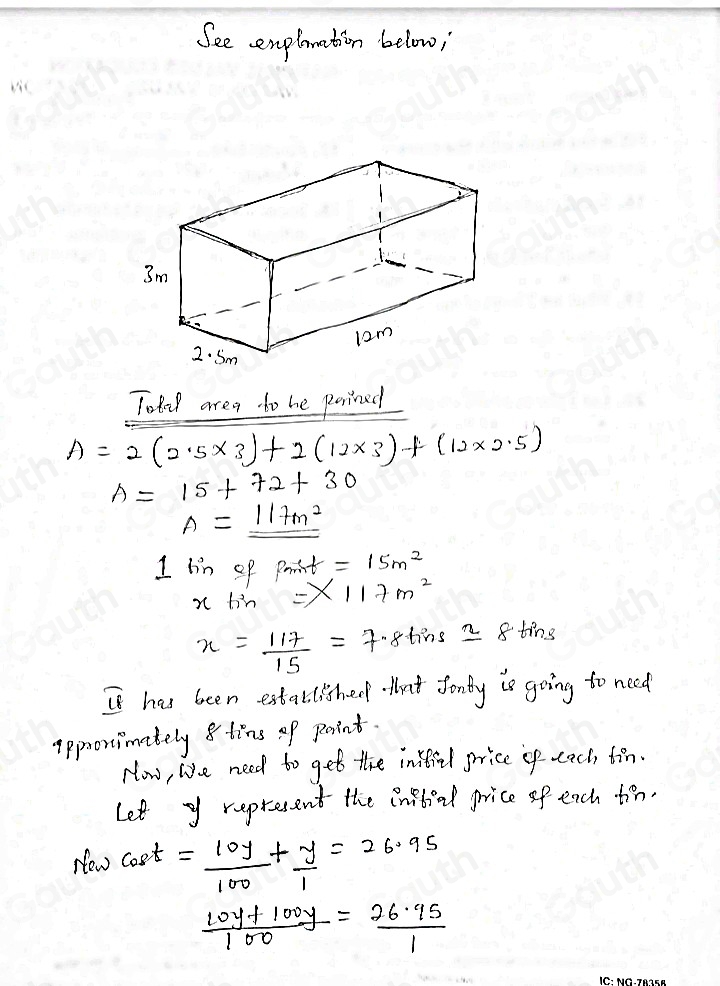 See explanation below;
3m
2.5m
12m
Total area to be pained
A = 2(2.5×3)+2(12×3)+(12×2.5)
A = 15+72+30
A = 117m²
1 tin of paint = 15m²
x tin = 117m²
x = 117/15 = 7.8tins ≃ 8 tins
It has been established that Jonty is going to need
approximately 8 tins of paint.
Now, we need to get the initial price of each tin.
Let y represent the initial price of each tin.
New cost = 10y/100 + y/1 = 26.95
10y+100y/100 = 26.95/1
IC: NG-78358
Gauth